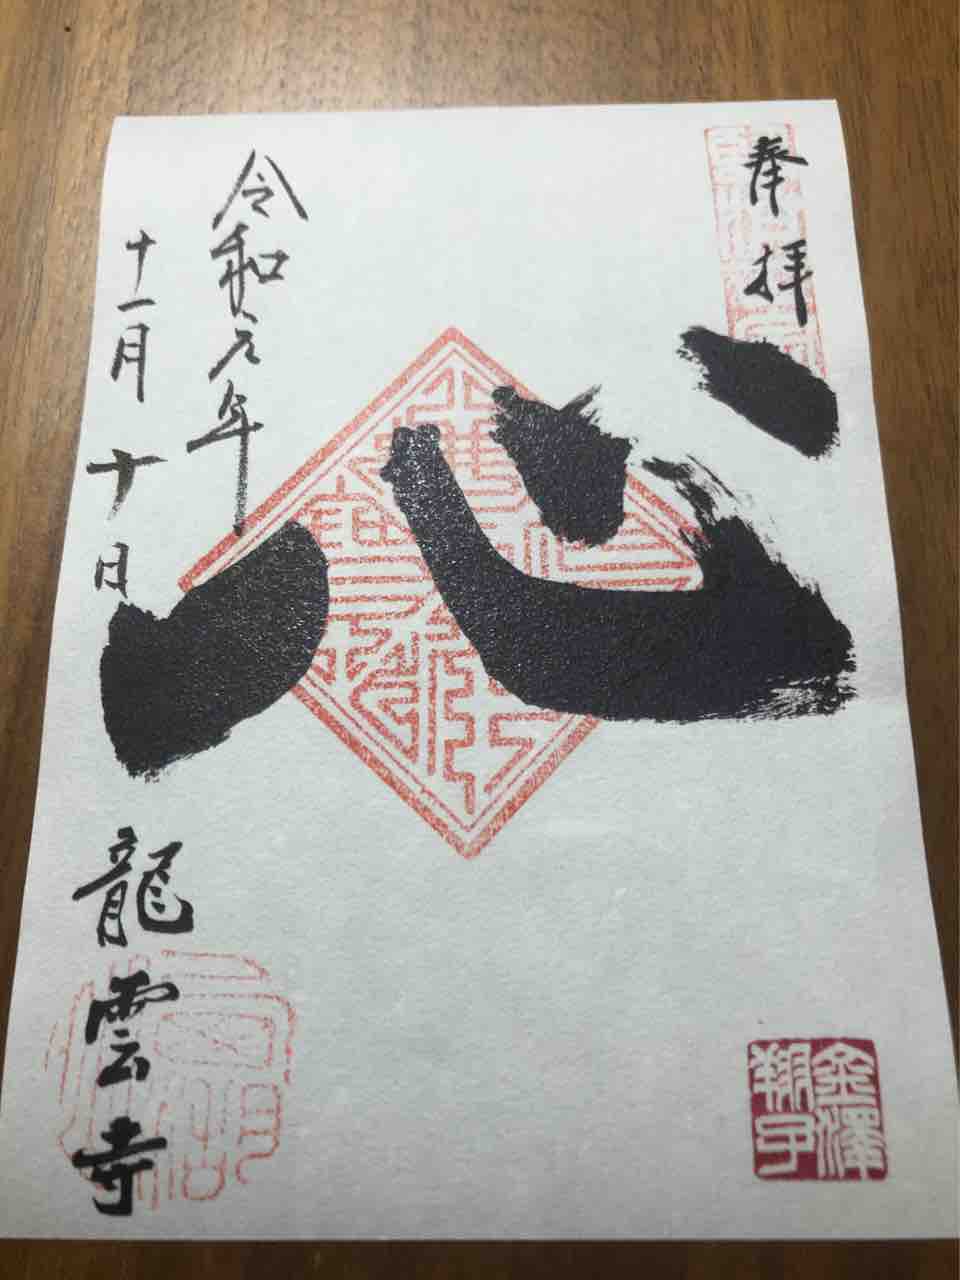 奉拝
心
令和元年
十一月十日
龍雲寺
金澤
翔子